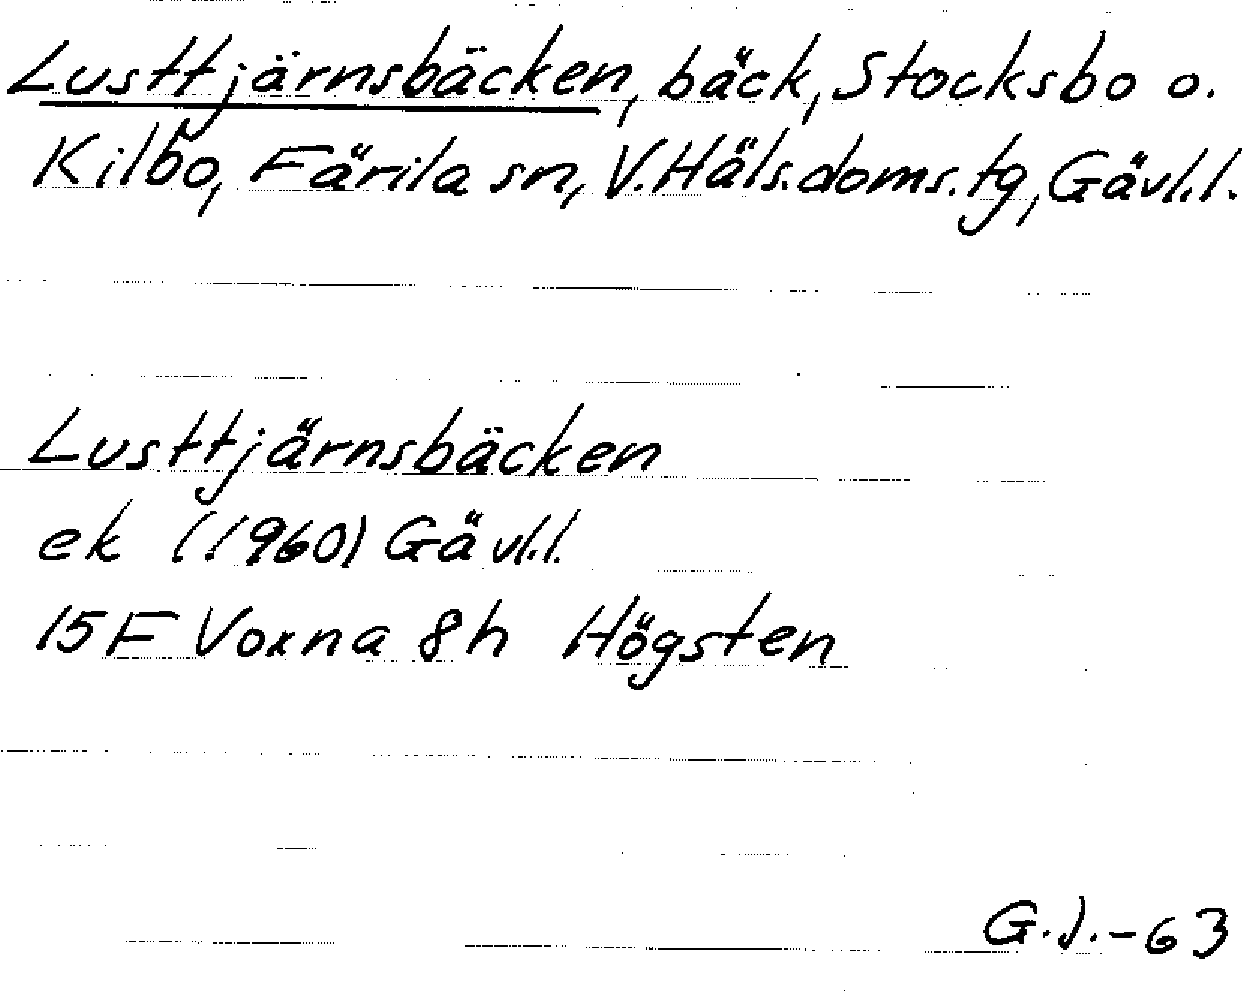 Lusttjärnsbäcken, bäck, Stocksbo o.
Kilbo, Färila sn, V. Häls. doms. tg, Gävl. l.
Lusttjärnsbäcken
ek (1960) Gävl. l.
15F Voxna 8h Högsten
G. J. - 63